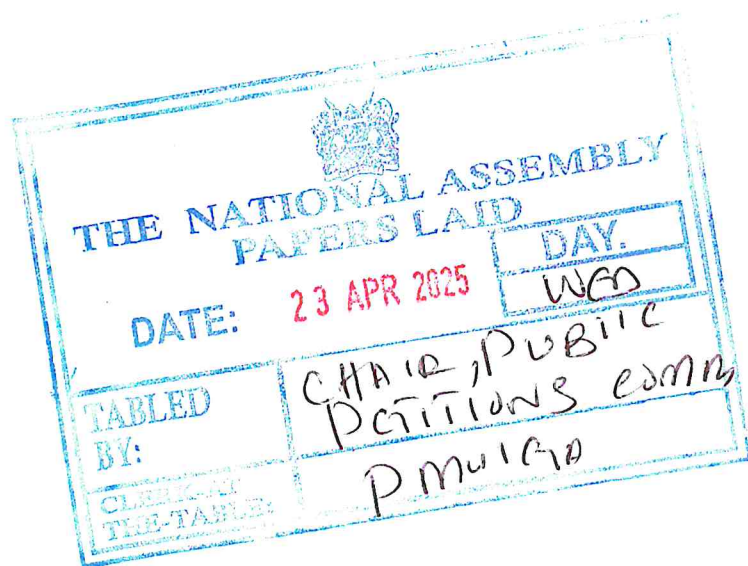 THE NATIONAL ASSEMBLY
PAPERS LAID
DATE: 23 APR 2025
DAY.
WED
TABLED BY:
CHAIR, PUBLIC
PETITIONS COMM,
CLERK-AT
THE-TABLE: